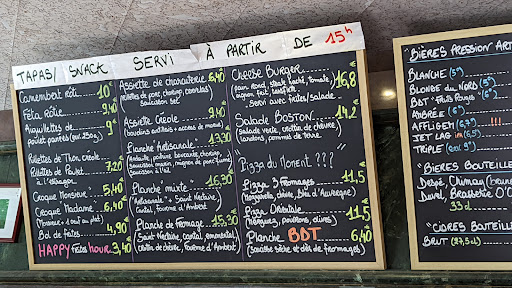 TAPAS/ SNACK SERVI À PARTIR DE 15h
Camembert rôti 10€
Feta rôtie 9,40
Aiguillettes de 9€
poulet panées (env. 250g)
Rillettes de Thon créole
Rillettes de Poulet 7,20
à l'étranger
Croque Monsieur 5,40
Croque Madame 6,90
(Monsieur + œuf au plat)
Bol de frites 4,90
HAPPY Frites hour 3,40
Assiette de charcuterie 6,40
(rillettes de porc, chorizo, cornichons)
saucisson sec)
Assiette Créole 9,40
(boudins antillais + accras de morue)
Planche Artisanale 17,30
(Andouille, poitrine, chorizo,
saucisson sec, mignon de porc fumé
Planche mixte 16,30
("Artisanale" + Saint Nectaire,
Cantal, fourme d'Ambert)
Planche de fromage 15,30
(Saint Nectaire, cantal, emmental,
crottin de chèvre, fourme d'Ambert
Cheese Burger 16,8
(pain rond, steak haché, tomate,
oignon frit, lentille)
Servi avec frites/salade
Salade Boston 14,2
(Salade verte, crottin de chèvre,
lardons, pommes de terre)
Pizza du Moment ???
Pizza 3 Fromages 11,5
(Mozzarella, chèvre, bleu d'Auvergne)
Pizza Orientale 11,5
(Merguez, poivrons, olives)
Planche BDT 6,40
(saucisse sèche et dés de fromages)
"BIÈRES PRESSION ART
BLANCHE (5°)
BLONDE du NORD (5°)
BDT "Fruits Rouges"
AMBRÉE (6°)
AFFLIGEM !!!
JET LAG
TRIPLE (9°)
"BIÈRES BOUTEILLE
Despé, Chimay (bleue
Duvel, Brasserie D'O
33cl
"CIDRES BOUTEILLE
BRUT (27,5cl)